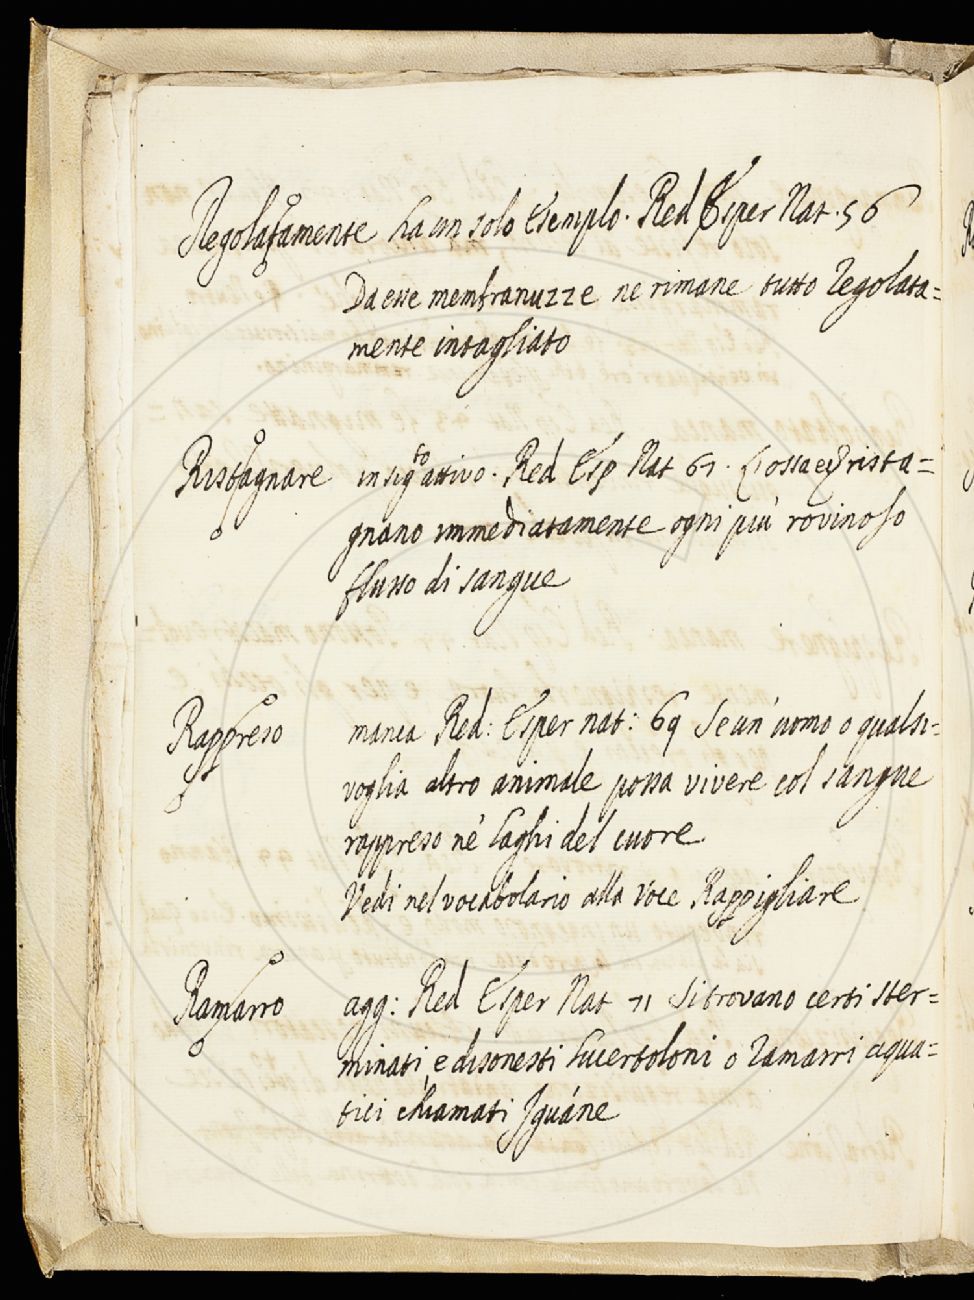 Regolatamente ha un solo Esemplo. Red Esper Nat. 56
Da esse membranuzze ne rimane tutto regolata=
mente intagliato
Ristagnare in sig.to attivo. Red Esp Nat 67.
rista=
gnano immediatamente ogni più rovinoso
flusso di sangue
Rappreso manca Red: Esper nat: 69 Se un' uomo o qualsi=
voglia altro animale possa vivere col sangue
rappreso ne' laghi del cuore
Vedi nel vocabolario alla voce Rappigliare
Ramarro agg: Red Esper Nat 71 Si trovano certi ster=
minati, e disonesti lucertoloni o ramarri aqua=
tici chiamati Iguáne